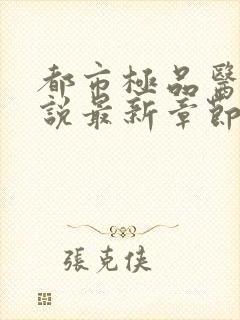 都市極品醫
說最新章節
張克俠